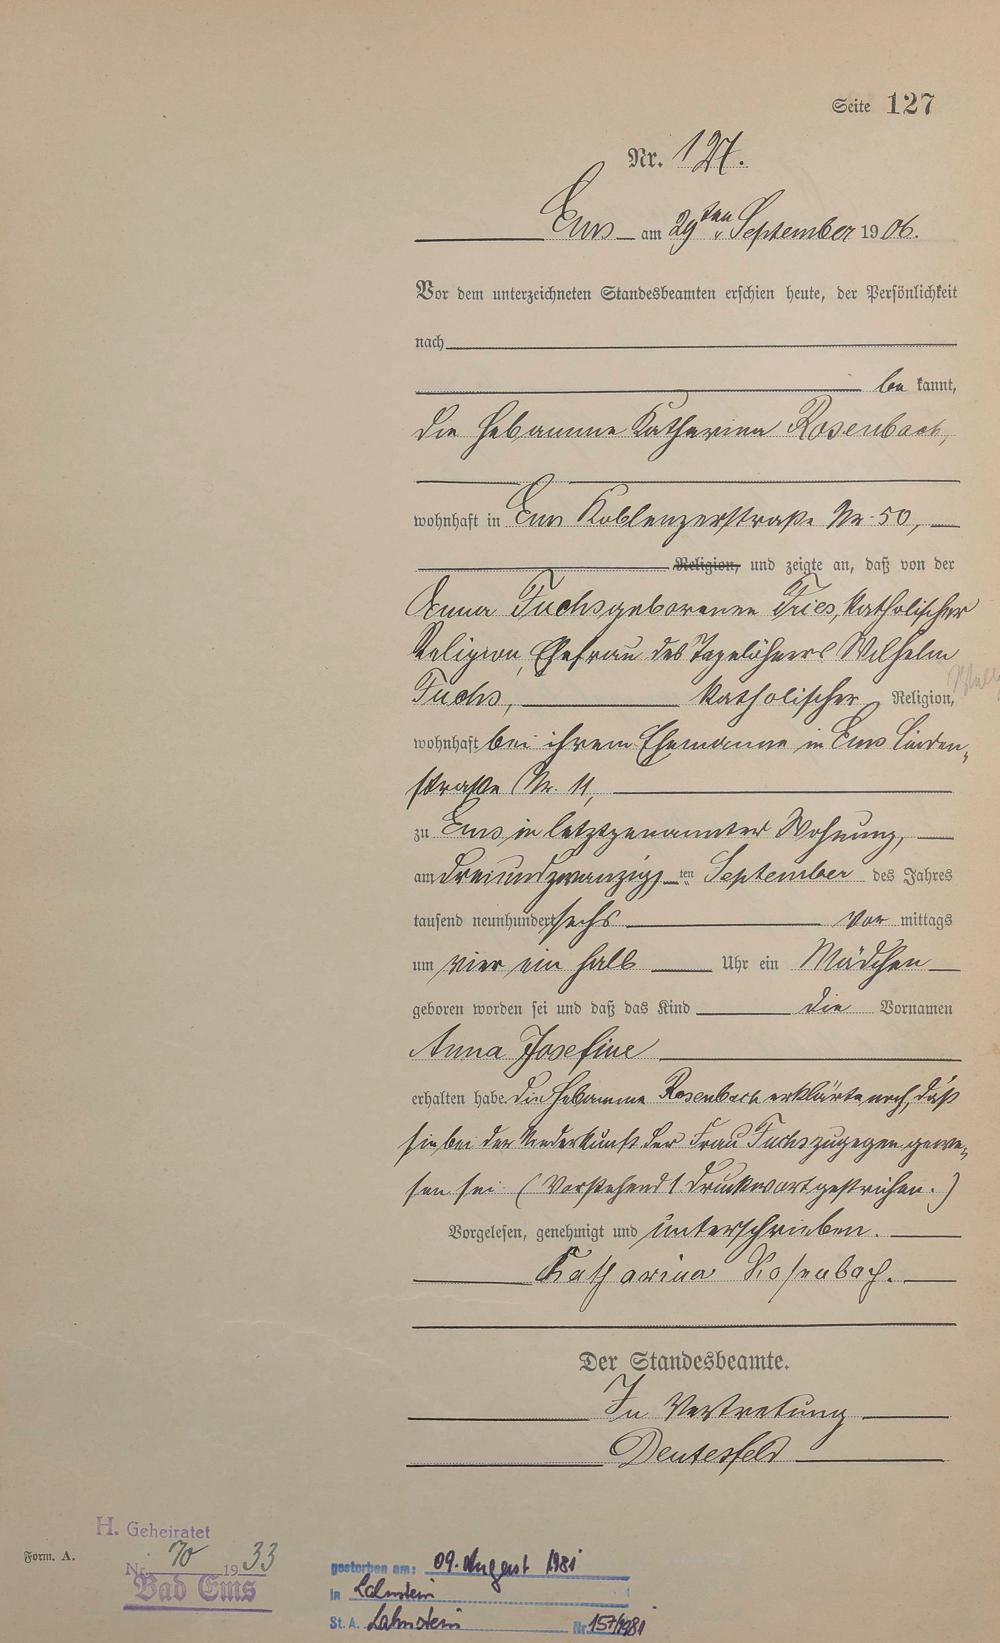 Seite 127
Nr. 127.
Ems am 29ten September 1906.
Vor dem unterzeichneten Standesbeamten erschien heute, der Persönlichkeit
nach
be kannt,
die Hebamme Katharina Rosenbach,
wohnhaft in Ems Koblenzerstraße Nr. 50,
Religion, und zeigte an, daß von der
Anna Fuchs geborenen Fries, katholischer
Religion, Ehefrau des Tagelöhners Wilhelm
Fuchs, katholischer Religion,
wohnhaft bei ihrem Ehemanne in Ems Linden-
straße Nr. 11,
zu Ems in letztgenannter Wohnung,
am dreiundzwanzigsten September des Jahres
tausend neunhundert sechs vor mittags
um vier ein halb Uhr ein Mädchen
geboren worden sei und daß das Kind die Vornamen
Anna Josefine
erhalten habe. Die Hebamme Rosenbach erklärte noch, daß
sie bei der Niederkunft der Frau Fuchs zugegen gewe-
sen sei. (Vorstehend 1 Druckwort gestrichen.)
Vorgelesen, genehmigt und unterschrieben.
Katharina Rosenbach.
Der Standesbeamte.
In Vertretung
Deutesfeld
H. Geheiratet
Nr. 70 1933
Bad Ems
Form. A.
gestorben am: 09. August 1981
in Lahnstein
St. A. Lahnstein Nr. 157/1981